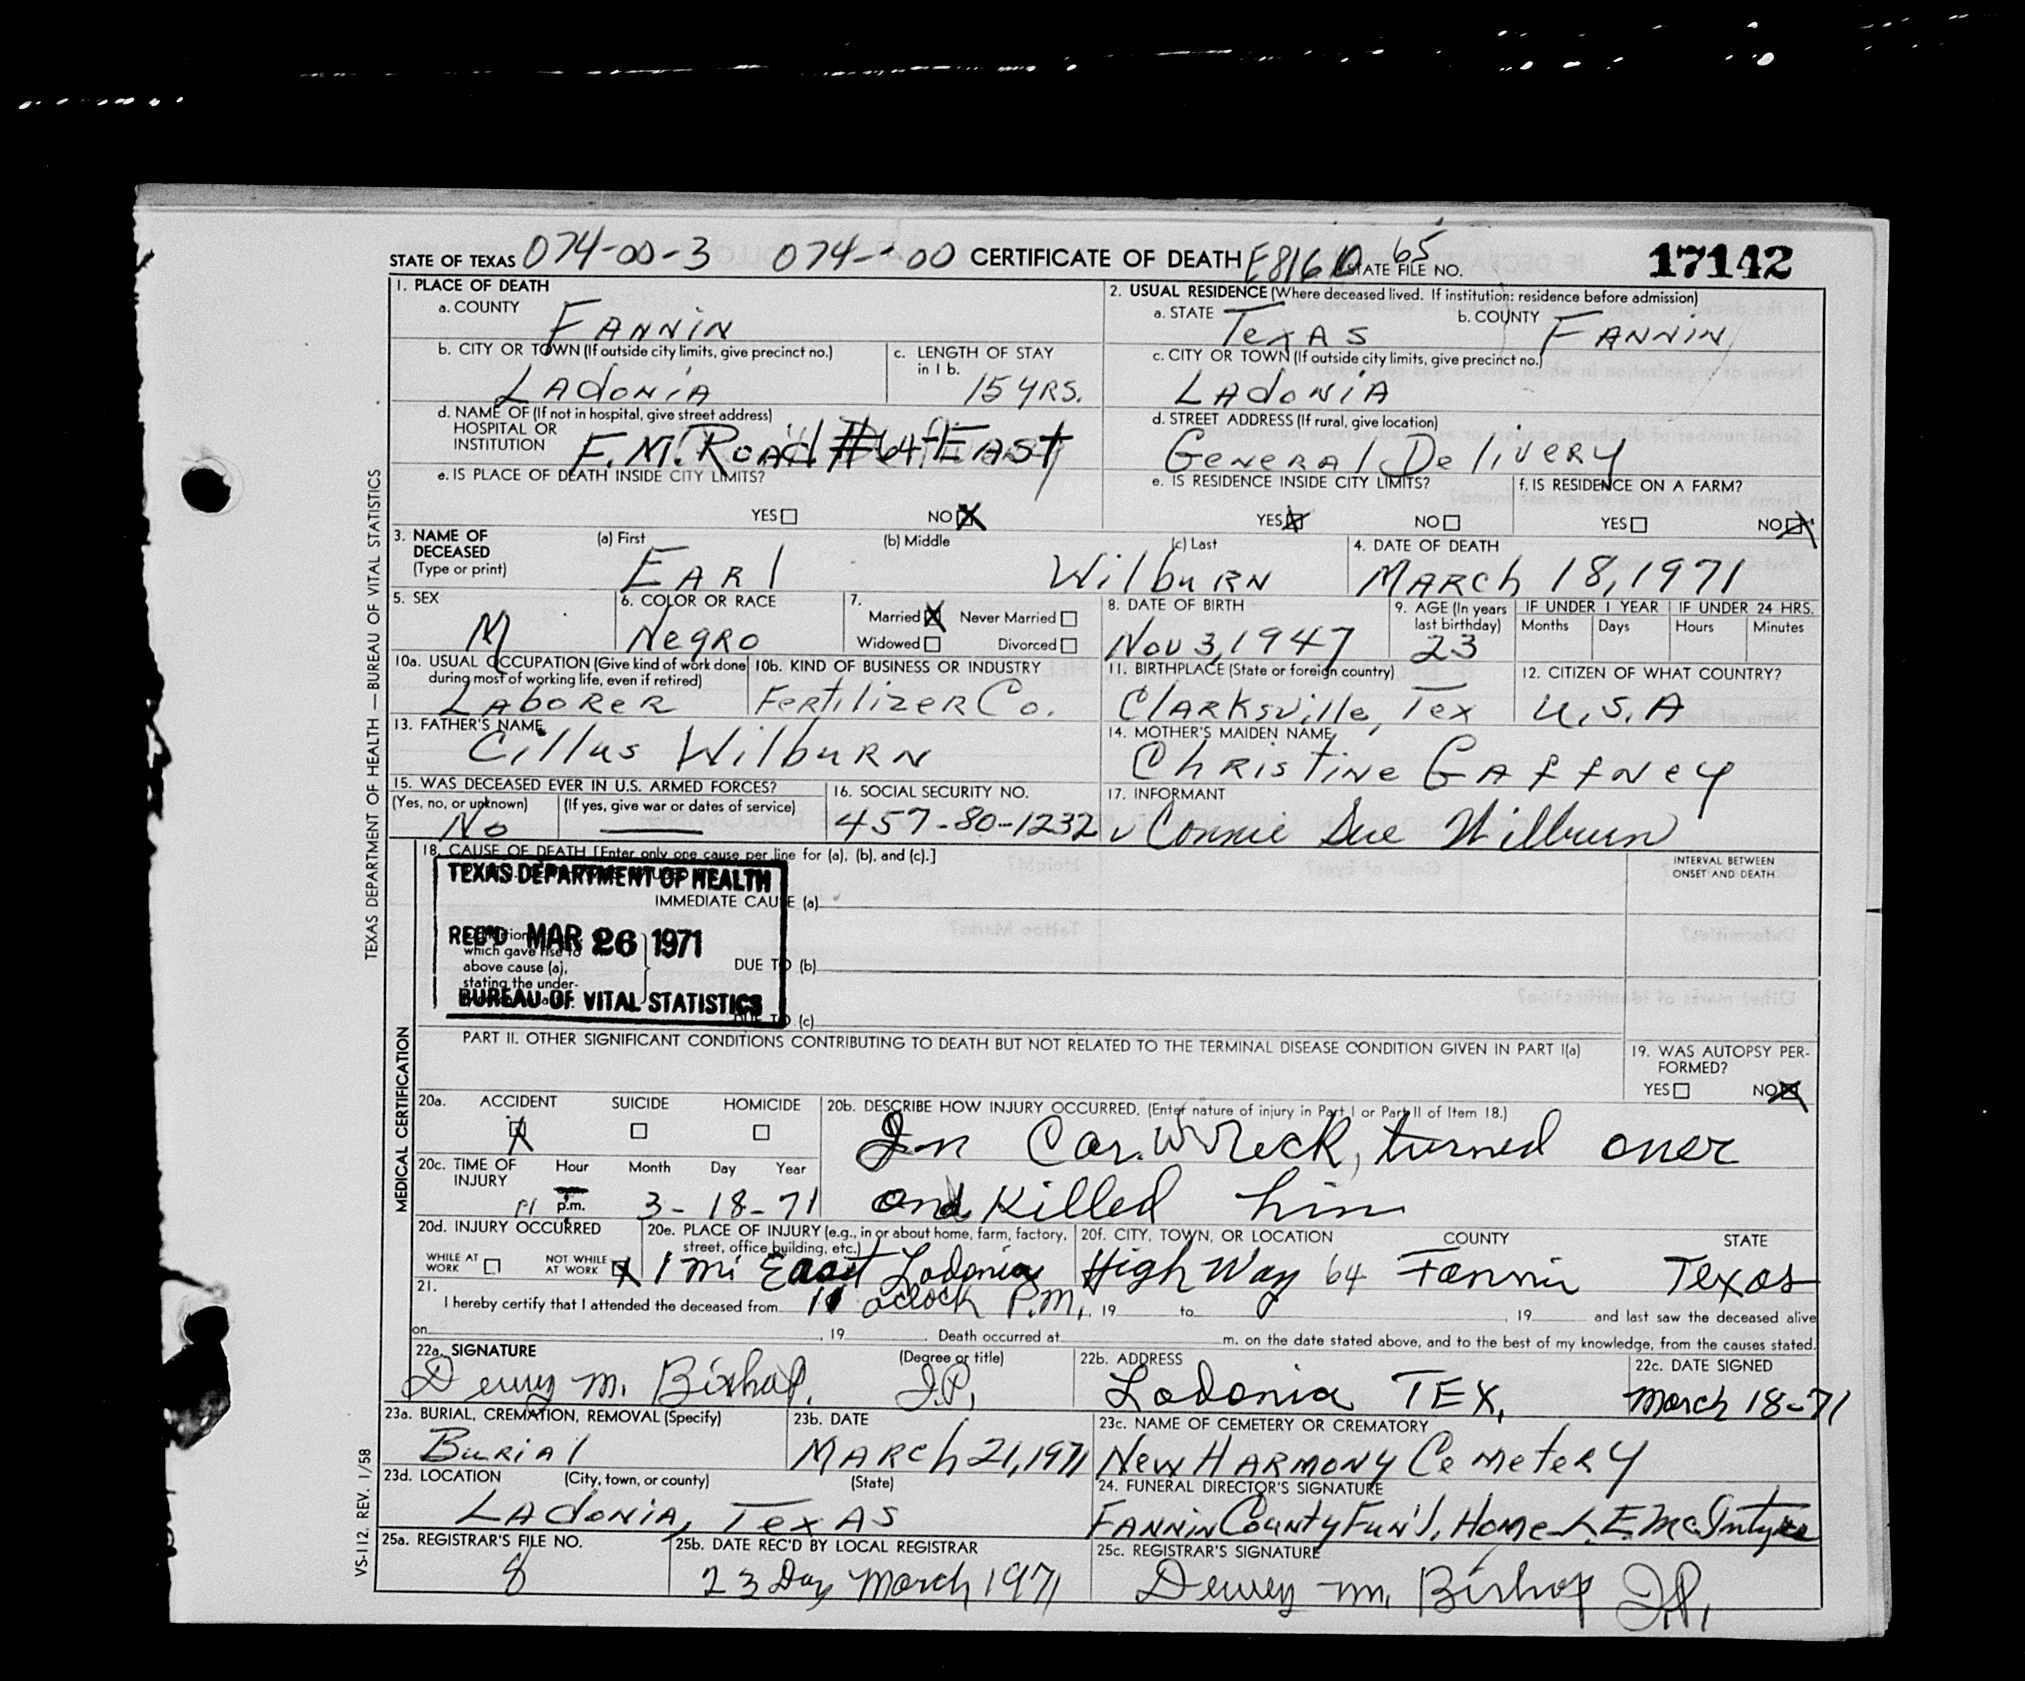 STATE OF TEXAS 074-00-3 074-00 CERTIFICATE OF DEATH E816.0 65 STATE FILE NO. 17142
1. PLACE OF DEATH
a. COUNTY Fannin
2. USUAL RESIDENCE (Where deceased lived. If institution: residence before admission)
a. STATE Texas b. COUNTY Fannin
b. CITY OR TOWN (If outside city limits, give precinct no.) Ladonia
c. LENGTH OF STAY in 1 b. 15 yrs.
c. CITY OR TOWN (If outside city limits, give precinct no.) Ladonia
d. NAME OF (If not in hospital, give street address) HOSPITAL OR INSTITUTION F.M. Road #64 East
d. STREET ADDRESS (If rural, give location) General Delivery
e. IS PLACE OF DEATH INSIDE CITY LIMITS? YES NO X
e. IS RESIDENCE INSIDE CITY LIMITS? YES X NO
f. IS RESIDENCE ON A FARM? YES NO X
3. NAME OF DECEASED (Type or print) (a) First Earl (b) Middle (c) Last Wilburn
4. DATE OF DEATH March 18, 1971
5. SEX M
6. COLOR OR RACE Negro
7. Married X Never Married Widowed Divorced
8. DATE OF BIRTH Nov 3, 1947
9. AGE (In years last birthday) 23
IF UNDER 1 YEAR Months Days
IF UNDER 24 HRS. Hours Minutes
10a. USUAL OCCUPATION (Give kind of work done during most of working life, even if retired) Laborer
10b. KIND OF BUSINESS OR INDUSTRY Fertilizer Co.
11. BIRTHPLACE (State or foreign country) Clarksville, Tex
12. CITIZEN OF WHAT COUNTRY? U.S.A
13. FATHER'S NAME Cillus Wilburn
14. MOTHER'S MAIDEN NAME Christine Gaffney
15. WAS DECEASED EVER IN U.S. ARMED FORCES? (Yes, no, or unknown) No (If yes, give war or dates of service)
16. SOCIAL SECURITY NO. 457-80-1232
17. INFORMANT Connie Sue Wilburn
18. CAUSE OF DEATH [Enter only one cause per line for (a), (b), and (c).]
INTERVAL BETWEEN ONSET AND DEATH
TEXAS DEPARTMENT OF HEALTH
REC'D MAR 26 1971
BUREAU OF VITAL STATISTICS
IMMEDIATE CAUSE (a)
which gave rise to above cause (a), stating the under-
DUE TO (b)
DUE TO (c)
PART II. OTHER SIGNIFICANT CONDITIONS CONTRIBUTING TO DEATH BUT NOT RELATED TO THE TERMINAL DISEASE CONDITION GIVEN IN PART I(a)
19. WAS AUTOPSY PERFORMED? YES NO X
20a. ACCIDENT X SUICIDE HOMICIDE
20b. DESCRIBE HOW INJURY OCCURRED. (Enter nature of injury in Part I or Part II of Item 18.)
In Car. Wreck, turned over
and Killed him
20c. TIME OF INJURY Hour Month Day Year
11 p.m. 3-18-71
20d. INJURY OCCURRED WHILE AT WORK NOT WHILE AT WORK X
20e. PLACE OF INJURY (e.g., in or about home, farm, factory, street, office building, etc.) 1 mi East Ladonia
20f. CITY, TOWN, OR LOCATION High Way 64 COUNTY Fannin STATE Texas
21. I hereby certify that I attended the deceased from 11 oclock P.M., 19 to , 19 and last saw the deceased alive
on , 19 . Death occurred at m. on the date stated above, and to the best of my knowledge, from the causes stated.
22a. SIGNATURE (Degree or title) Dewey M. Bishop. J.P.
22b. ADDRESS Ladonia TEX.
22c. DATE SIGNED March 18-71
23a. BURIAL, CREMATION, REMOVAL (Specify) Burial
23b. DATE March 21, 1971
23c. NAME OF CEMETERY OR CREMATORY New Harmony Cemetery
23d. LOCATION (City, town, or county) (State) Ladonia, Texas
24. FUNERAL DIRECTOR'S SIGNATURE Fannin County Fun'l. Home L. E. McIntyre
25a. REGISTRAR'S FILE NO. 8
25b. DATE REC'D BY LOCAL REGISTRAR 23 Day March 1971
25c. REGISTRAR'S SIGNATURE Dewey M. Bishop J.P.
TEXAS DEPARTMENT OF HEALTH — BUREAU OF VITAL STATISTICS
MEDICAL CERTIFICATION
VS-112. REV. 1/58